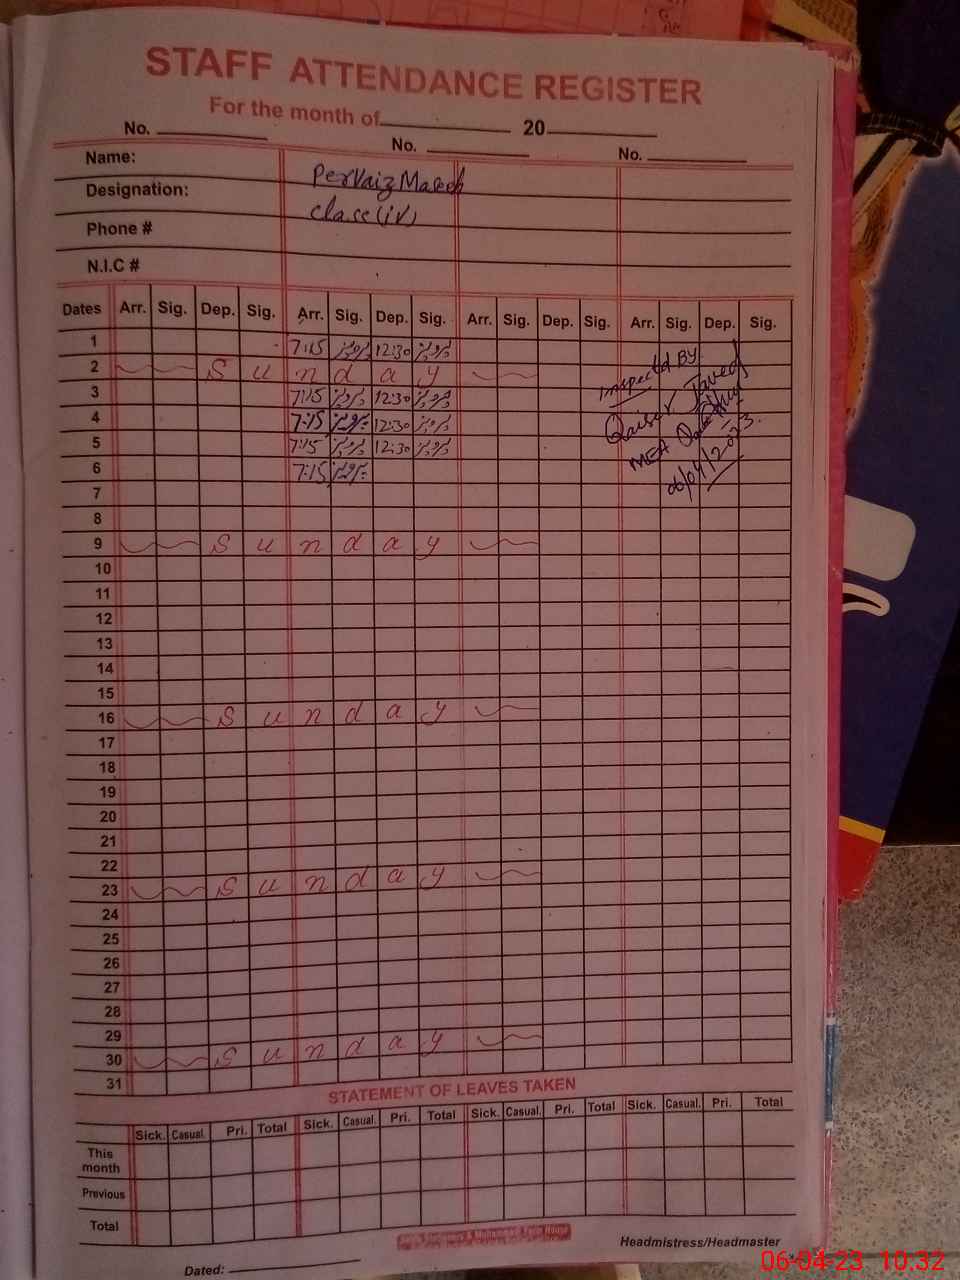 STAFF ATTENDANCE REGISTER
For the month of 20
No. No. No.
Name: Pervaiz Maseeh
Designation: Class (iv)
Phone #
N.I.C #
Dates Arr. Sig. Dep. Sig. Arr. Sig. Dep. Sig. Arr. Sig. Dep. Sig. Arr. Sig. Dep. Sig.
1 7:15 پرویز 12:30 پرویز
2 Sunday
3 7:15 پرویز 12:30 پرویز
4 7:15 پرویز 12:30 پرویز
5 7:15 پرویز 12:30 پرویز
6 7:15 پرویز
7
8
9 Sunday
10
11
12
13
14
15
16 Sunday
17
18
19
20
21
22
23 Sunday
24
25
26
27
28
29
30 Sunday
31
Inspected By
Qaiser Javed
MEA
06/04/2023.
STATEMENT OF LEAVES TAKEN
Sick. Casual. Pri. Total Sick. Casual. Pri. Total Sick. Casual. Pri. Total Sick. Casual. Pri. Total
This
month
Previous
Total
Headmistress/Headmaster
Dated:
06-04-23 10.32